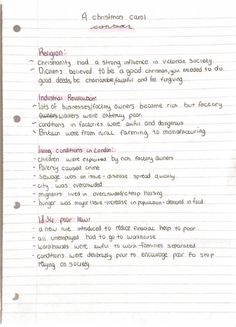 A christmas carol
context
Religion:
- Christianity had a strong influence in victorian society.
- Dickens believed to be a good christian, you needed to do
good deeds, be charitable, faithful and be forgiving.
Industrial Revolution:
- lots of businesses/factory owners became rich but factory
workers were extremly poor.
- conditions in factories were awful and dangerous
- Britain went from rural farming to manufacturing.
living conditions in London:
- children were exploited by rich factory owners
- Poverty caused crime
- sewage was an issue - disease spread quickly
- city was overcrowded
- migrants lived in overcrowded/cheap housing
- hunger was major issue - increase in population - demand in food
1834 poor law:
- a new law introduced to reduce financial help to poor
- all unemployed had to go to workhouse
- workhouses were awful to work - families seperated
- conditions were deliberatly poor to encourage poor to stop
relying on society.